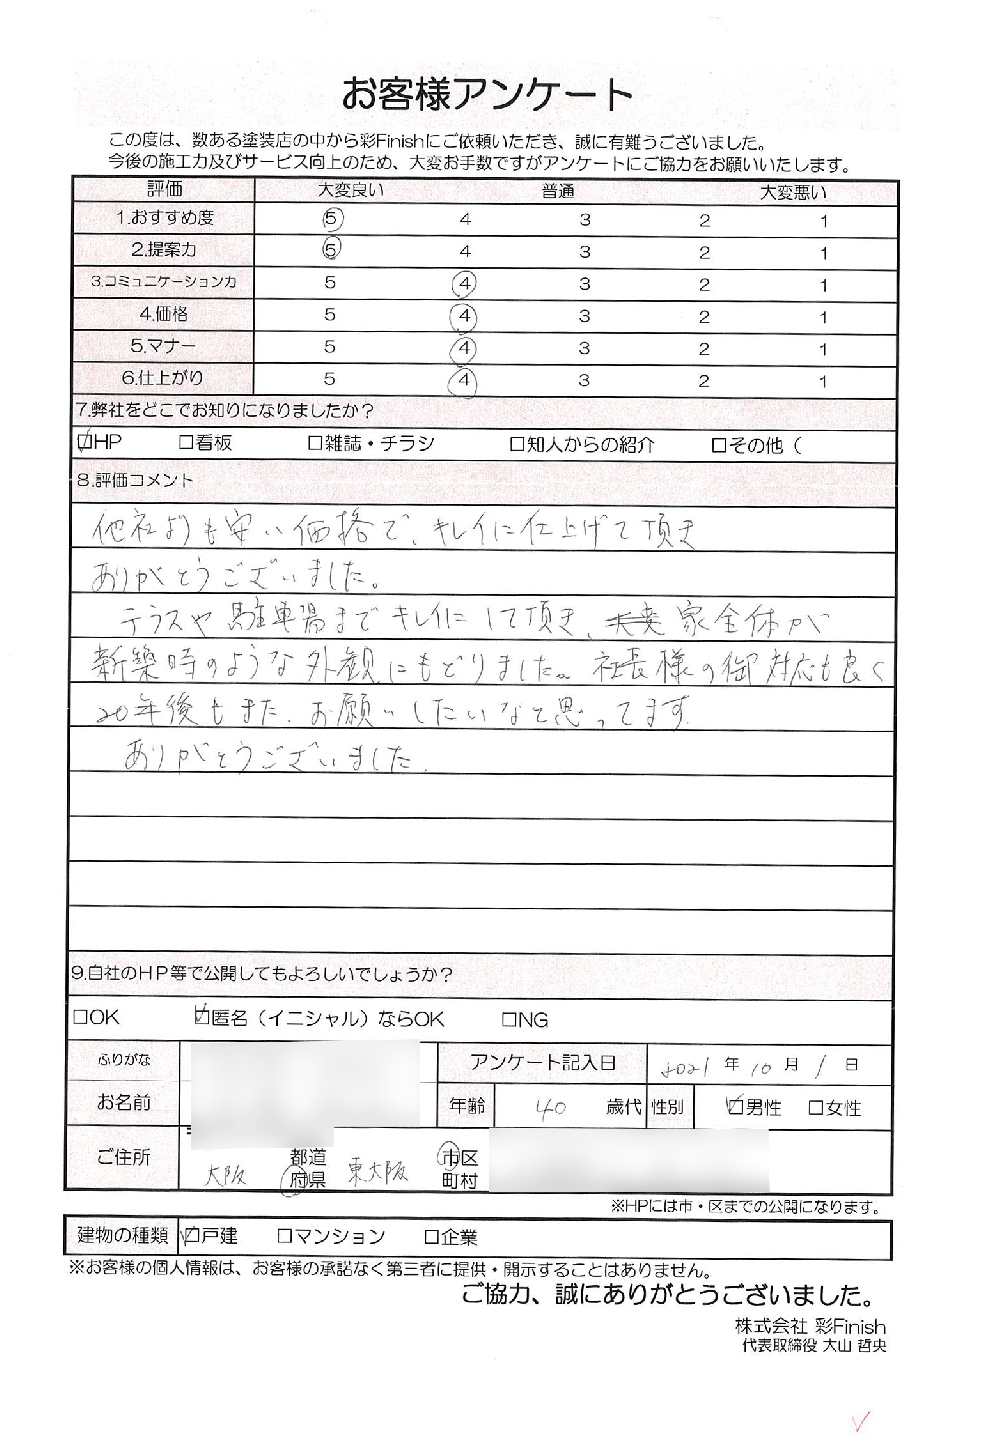 お客様アンケート
この度は、数ある塗装店の中から彩Finishにご依頼いただき、誠に有難うございました。
今後の施工力及びサービス向上のため、大変お手数ですがアンケートにご協力をお願いいたします。
評価 大変良い 普通 大変悪い
1.おすすめ度 5 4 3 2 1
2.提案力 5 4 3 2 1
3.コミュニケーション力 5 4 3 2 1
4.価格 5 4 3 2 1
5.マナー 5 4 3 2 1
6.仕上がり 5 4 3 2 1
7.弊社をどこでお知りになりましたか?
☑HP □看板 □雑誌・チラシ □知人からの紹介 □その他(
8.評価コメント
他社よりも安い価格で、キレイに仕上げて頂き
ありがとうございました。
テラスや駐車場までキレイにして頂き、家全体が
新築時のような外観にもどりました。社長様の御対応も良く
20年後もまた、お願いしたいなと思ってます
ありがとうございました.
9.自社のHP等で公開してもよろしいでしょうか?
□OK ☑匿名(イニシャル)ならOK □NG
ふりがな アンケート記入日 2021 年 10 月 1 日
お名前 年齢 40 歳代 性別 ☑男性 □女性
ご住所 大阪 都道府県 東大阪 市区町村
※HPには市・区までの公開になります。
建物の種類 ☑戸建 □マンション □企業
※お客様の個人情報は、お客様の承諾なく第三者に提供・開示することはありません。
ご協力、誠にありがとうございました。
株式会社 彩Finish
代表取締役 大山 哲央